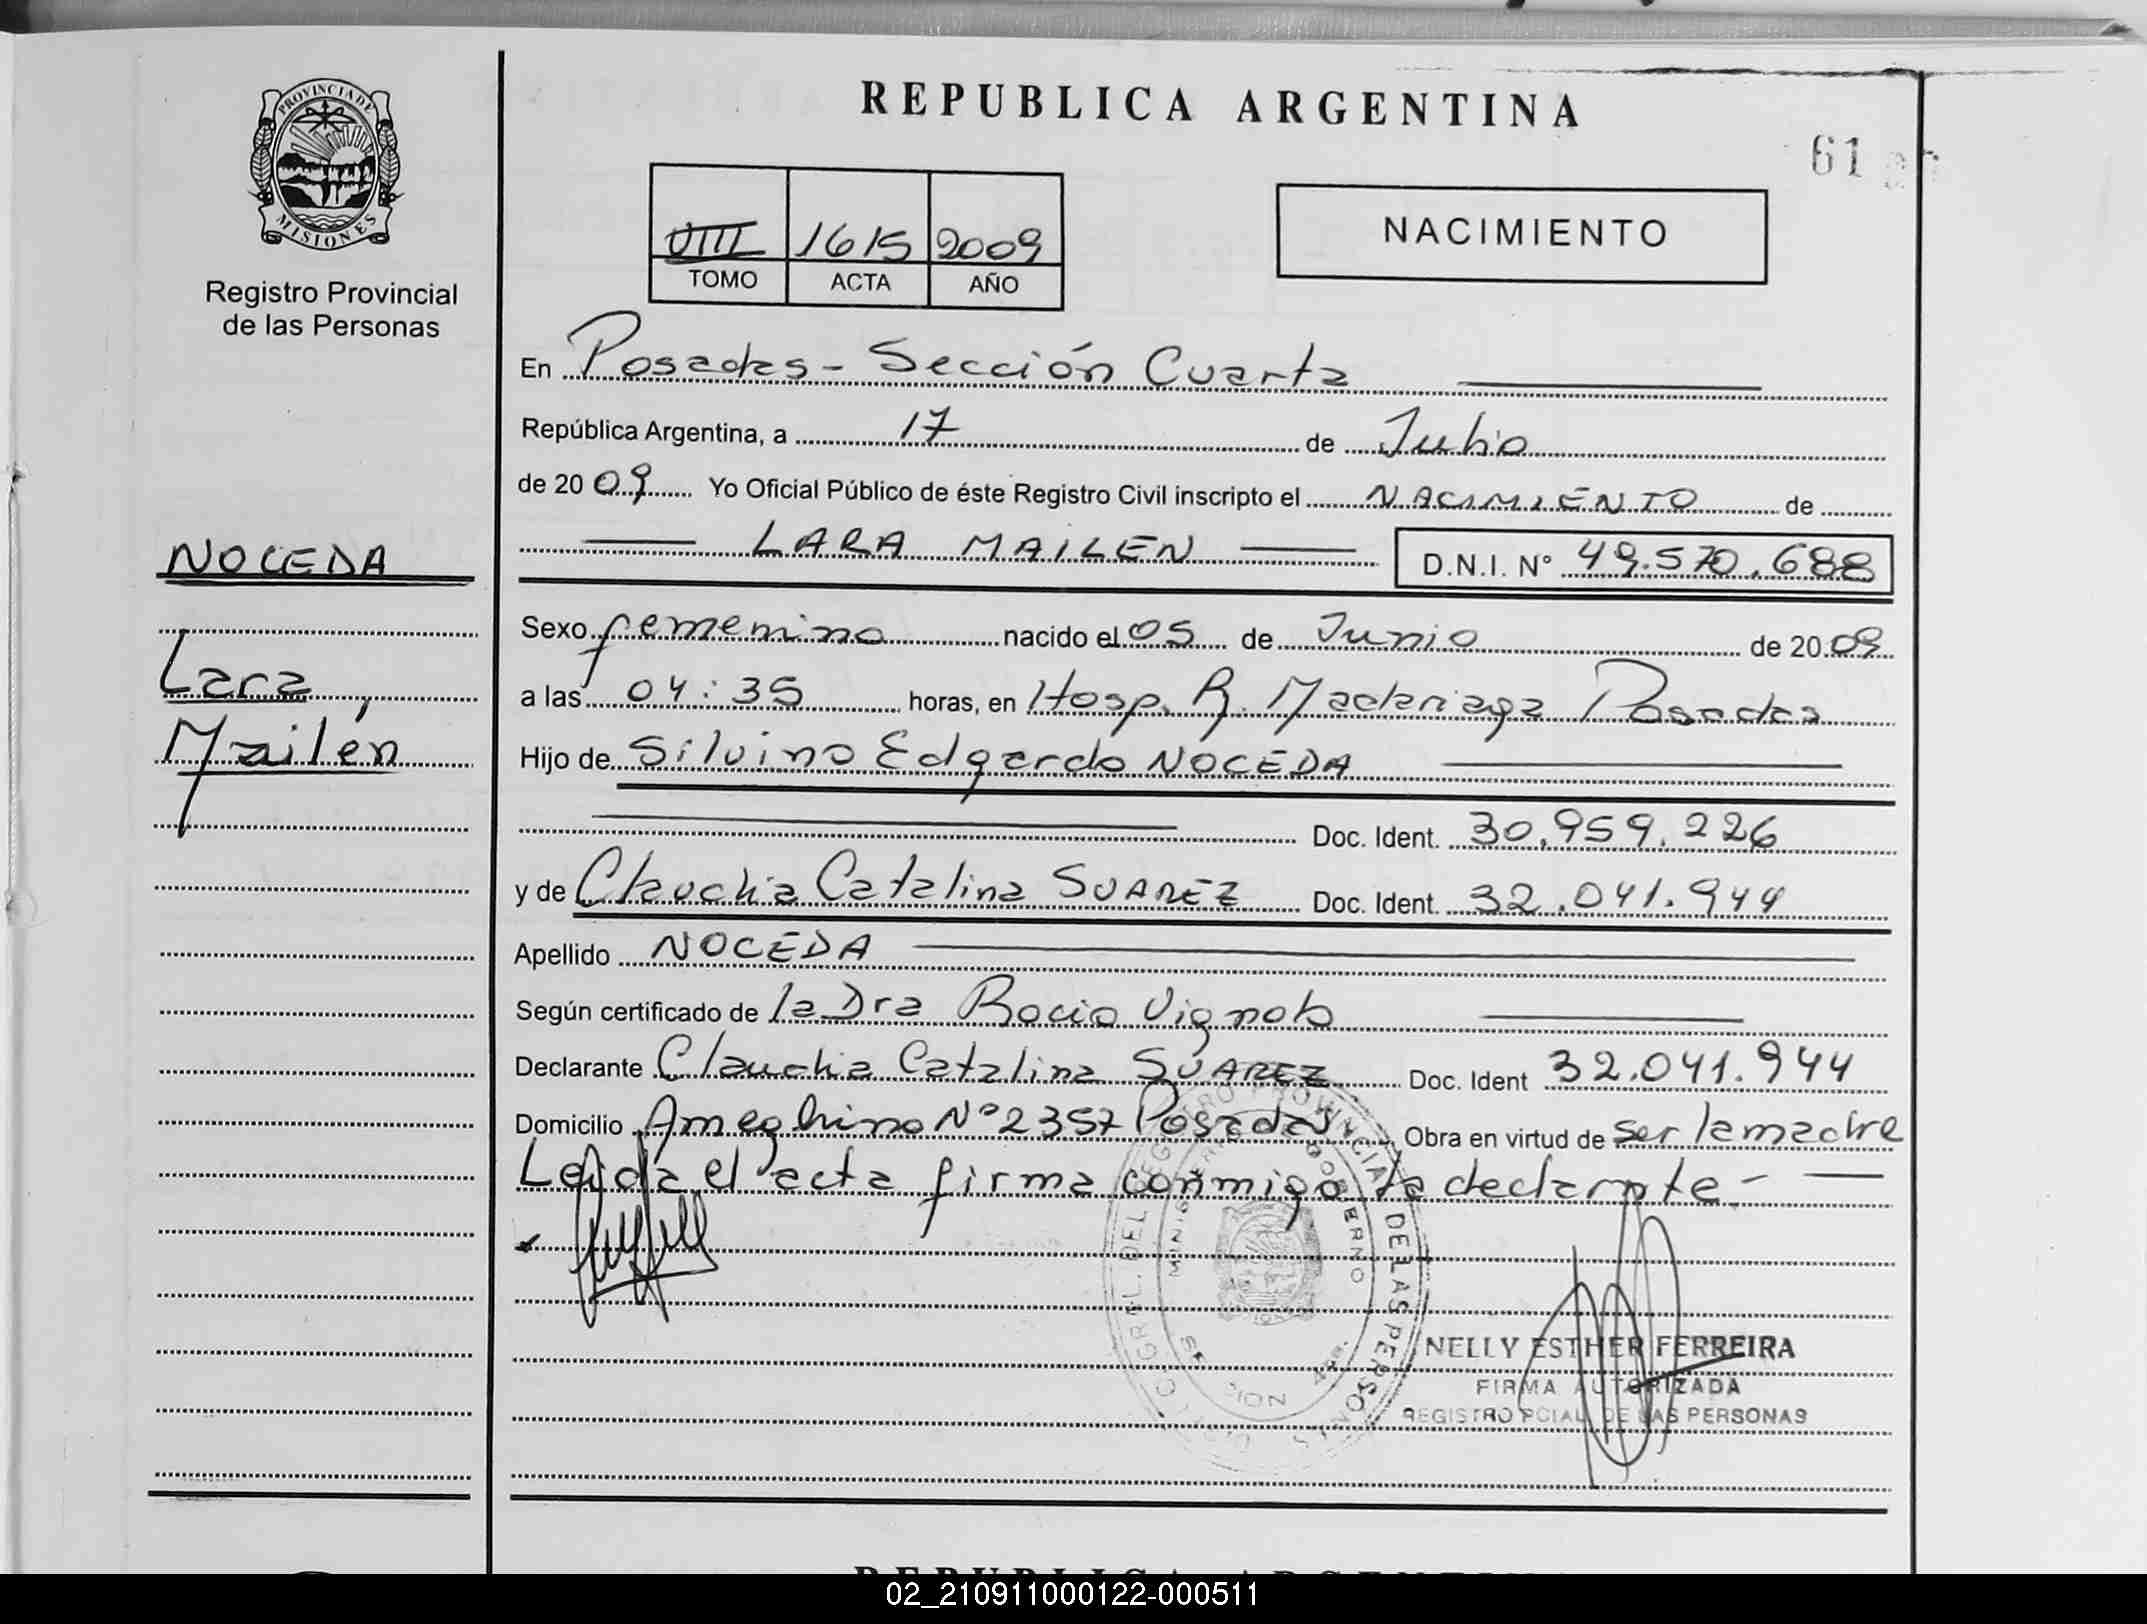 REPUBLICA ARGENTINA
61
PROVINCIA DE
MISIONES
Registro Provincial
de las Personas
VIII 1615 2009
TOMO ACTA AÑO
NACIMIENTO
En Posadas - Sección Cuarta
República Argentina, a 17 de Julio
de 2009 Yo Oficial Público de éste Registro Civil inscripto el NACIMIENTO de
LARA MAILEN D.N.I. Nº 49.570.688
NOCEDA
Lara
Mailén
Sexo femenino nacido el 05 de Junio de 2009
a las 04:35 horas, en Hosp. R. Madariaga Posadas
Hijo de Silvino Edgardo NOCEDA
Doc. Ident. 30.959.226
y de Claudia Catalina SUAREZ Doc. Ident. 32.041.944
Apellido NOCEDA
Según certificado de la Dra Rocio
Declarante Claudia Catalina SUAREZ Doc. Ident 32.041.944
Domicilio Ameghino Nº 2357 Posadas Obra en virtud de ser la madre
Leida el acta firma conmigo la declarante -
REGISTRO PROVINCIAL DE LAS PERSONAS
GOBIERNO
NELLY ESTHER FERREIRA
FIRMA AUTORIZADA
REGISTRO PCIAL DE LAS PERSONAS
02_210911000122-000511